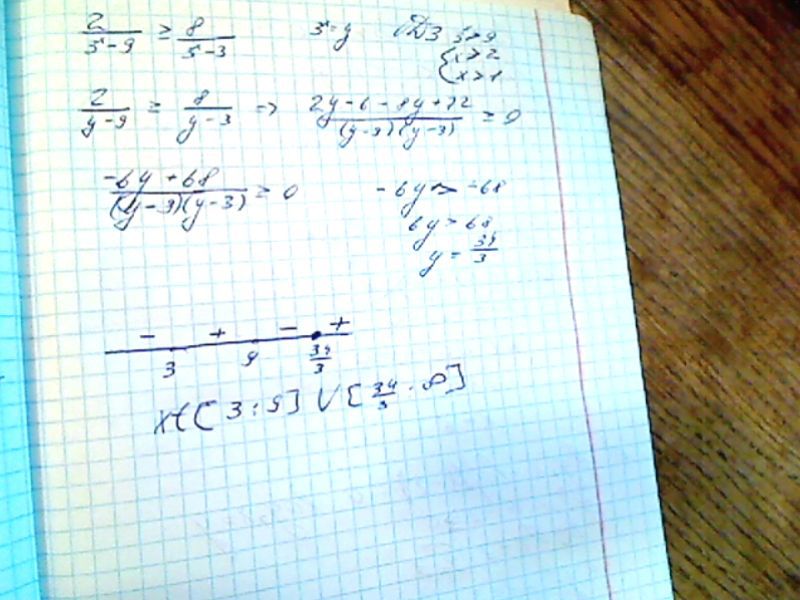 2/(3ˣ-9) ≥ 8/(3ˣ-3) 3ˣ=y ОДЗ 3ˣ>9
{x>2
x>1
2/(y-9) ≥ 8/(y-3) => (2y-6-8y+72)/((y-9)(y-3)) ≥ 0
(-6y+68)/((y-9)(y-3)) ≥ 0 -6y > -68
6y > 68
y = 34/3
- + - +
3 9 34/3
x∈[3;9] ∪ [34/3 · ∞]